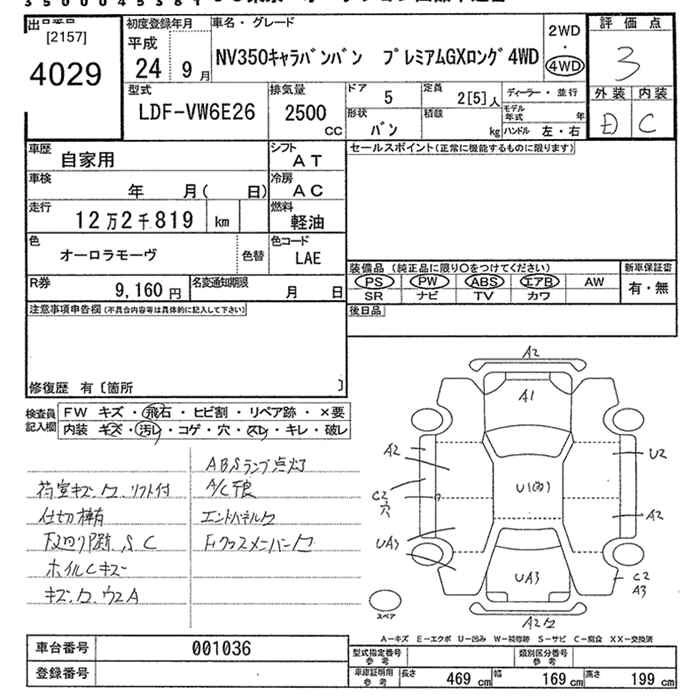 出品番号
[2157]
4029
初度登録年月
平成
24 9月
車名・グレード
NV350キャラバンバン プレミアムGXロング4WD
2WD
・
4WD
評価点
3
外装 内装
D C
型式
LDF-VW6E26
排気量
2500
CC
ドア 5
形状
バン
定員
2[5]人
積載
kg
ディーラー・並行
モデル年式 年
ハンドル 左・右
車歴
自家用
シフト
AT
車検
年 月( 日)
冷房
AC
走行
12万2千819 km
燃料
軽油
色
オーロラモーヴ
色替
色コード
LAE
R券
9,160円
名変通知期限
月 日
セールスポイント(正常に機能するものに限ります)
装備品 (純正品に限り〇をつけてください)
PS PW ABS エアB AW
SR ナビ TV カワ
新車保証書
有・無
後日品
注意事項申告欄(不具合内容等は具体的に記入して下さい)
修復歴 有〔箇所 〕
検査員記入欄
FW キズ・飛石・ヒビ割・リペア跡・×要
内装 キズ・汚レ・コゲ・穴・スレ・キレ・破レ
ABSランプ点灯
荷室キズ.ク.リフト付
A/C不良
仕切棒有
エンドパネルク
下回り S C
Fクロスメンバーク
ホイルCキズ
キズ.ク.ウスA
A2
A1
A2
U2
C2
穴
A2
UA3
UA3
C2
A3
A2
スペア
A-キズ E-エクボ U-凹み W-補修跡 S-サビ C-腐食 XX-交換済
車台番号
001036
登録番号
型式指定番号
参考
類別区分番号
参考
車庫証明用
参考
長さ 469 cm
幅 169 cm
高さ 199 cm